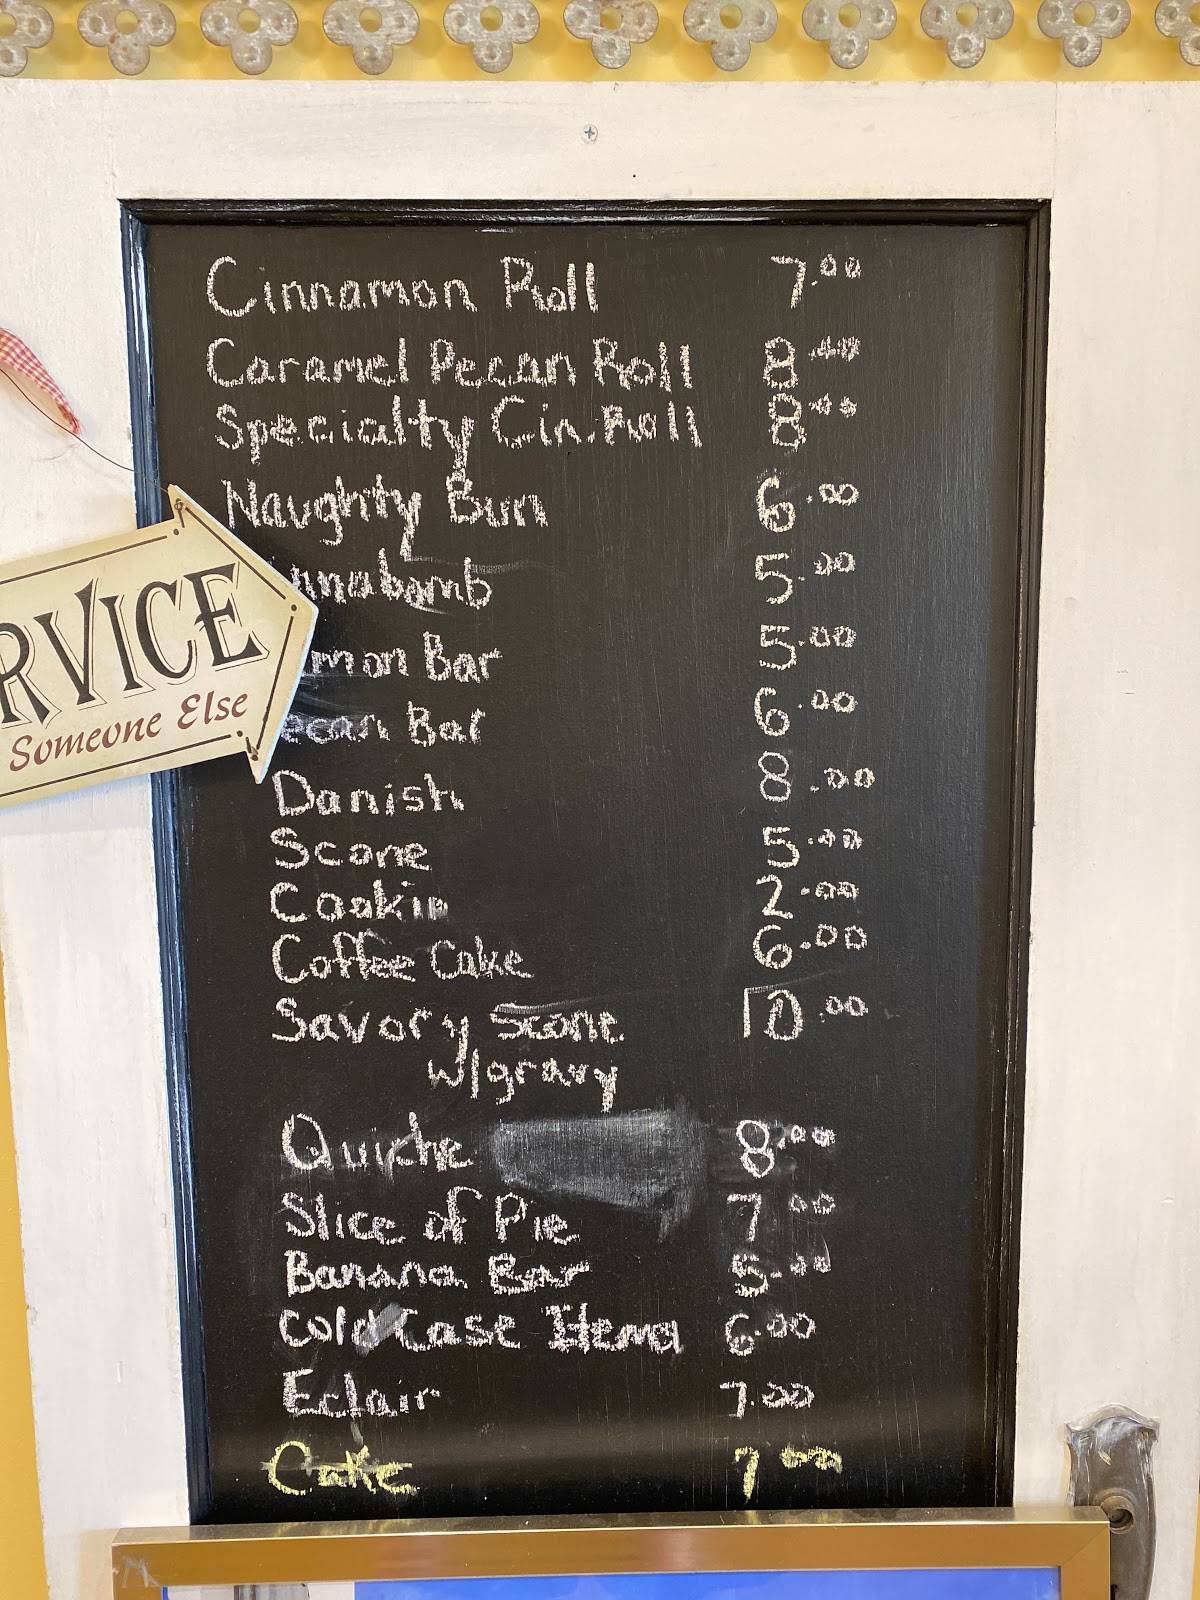 Cinnamon Roll 7.00
Caramel Pecan Roll 8.00
Specialty Cin. Roll 8.00
Naughty Bun 6.00
nnabomb 5.00
RVICE
mon Bar 5.00
Someone Else
ecan Bar 6.00
Danish 8.00
Scone 5.00
Cookie 2.00
Coffee Cake 6.00
Savory Scone 10.00
w/gravy
Quiche 8.00
Slice of Pie 7.00
Banana Bar 5.00
Cold Case Items 6.00
Eclair 7.00
Cake 7.00